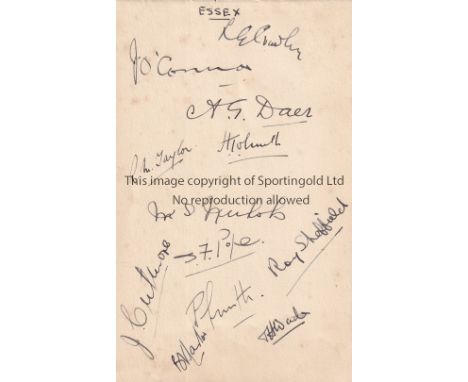 ESSEX
L G Crawley
J O'Connor
A G Daer
R M Taylor
H T O Smith
M S Nichols
S F Pope
Roy Sheffield
J Cutmore
P Smith
T H Wade
This image copyright of Sportingold Ltd
No reproduction allowed